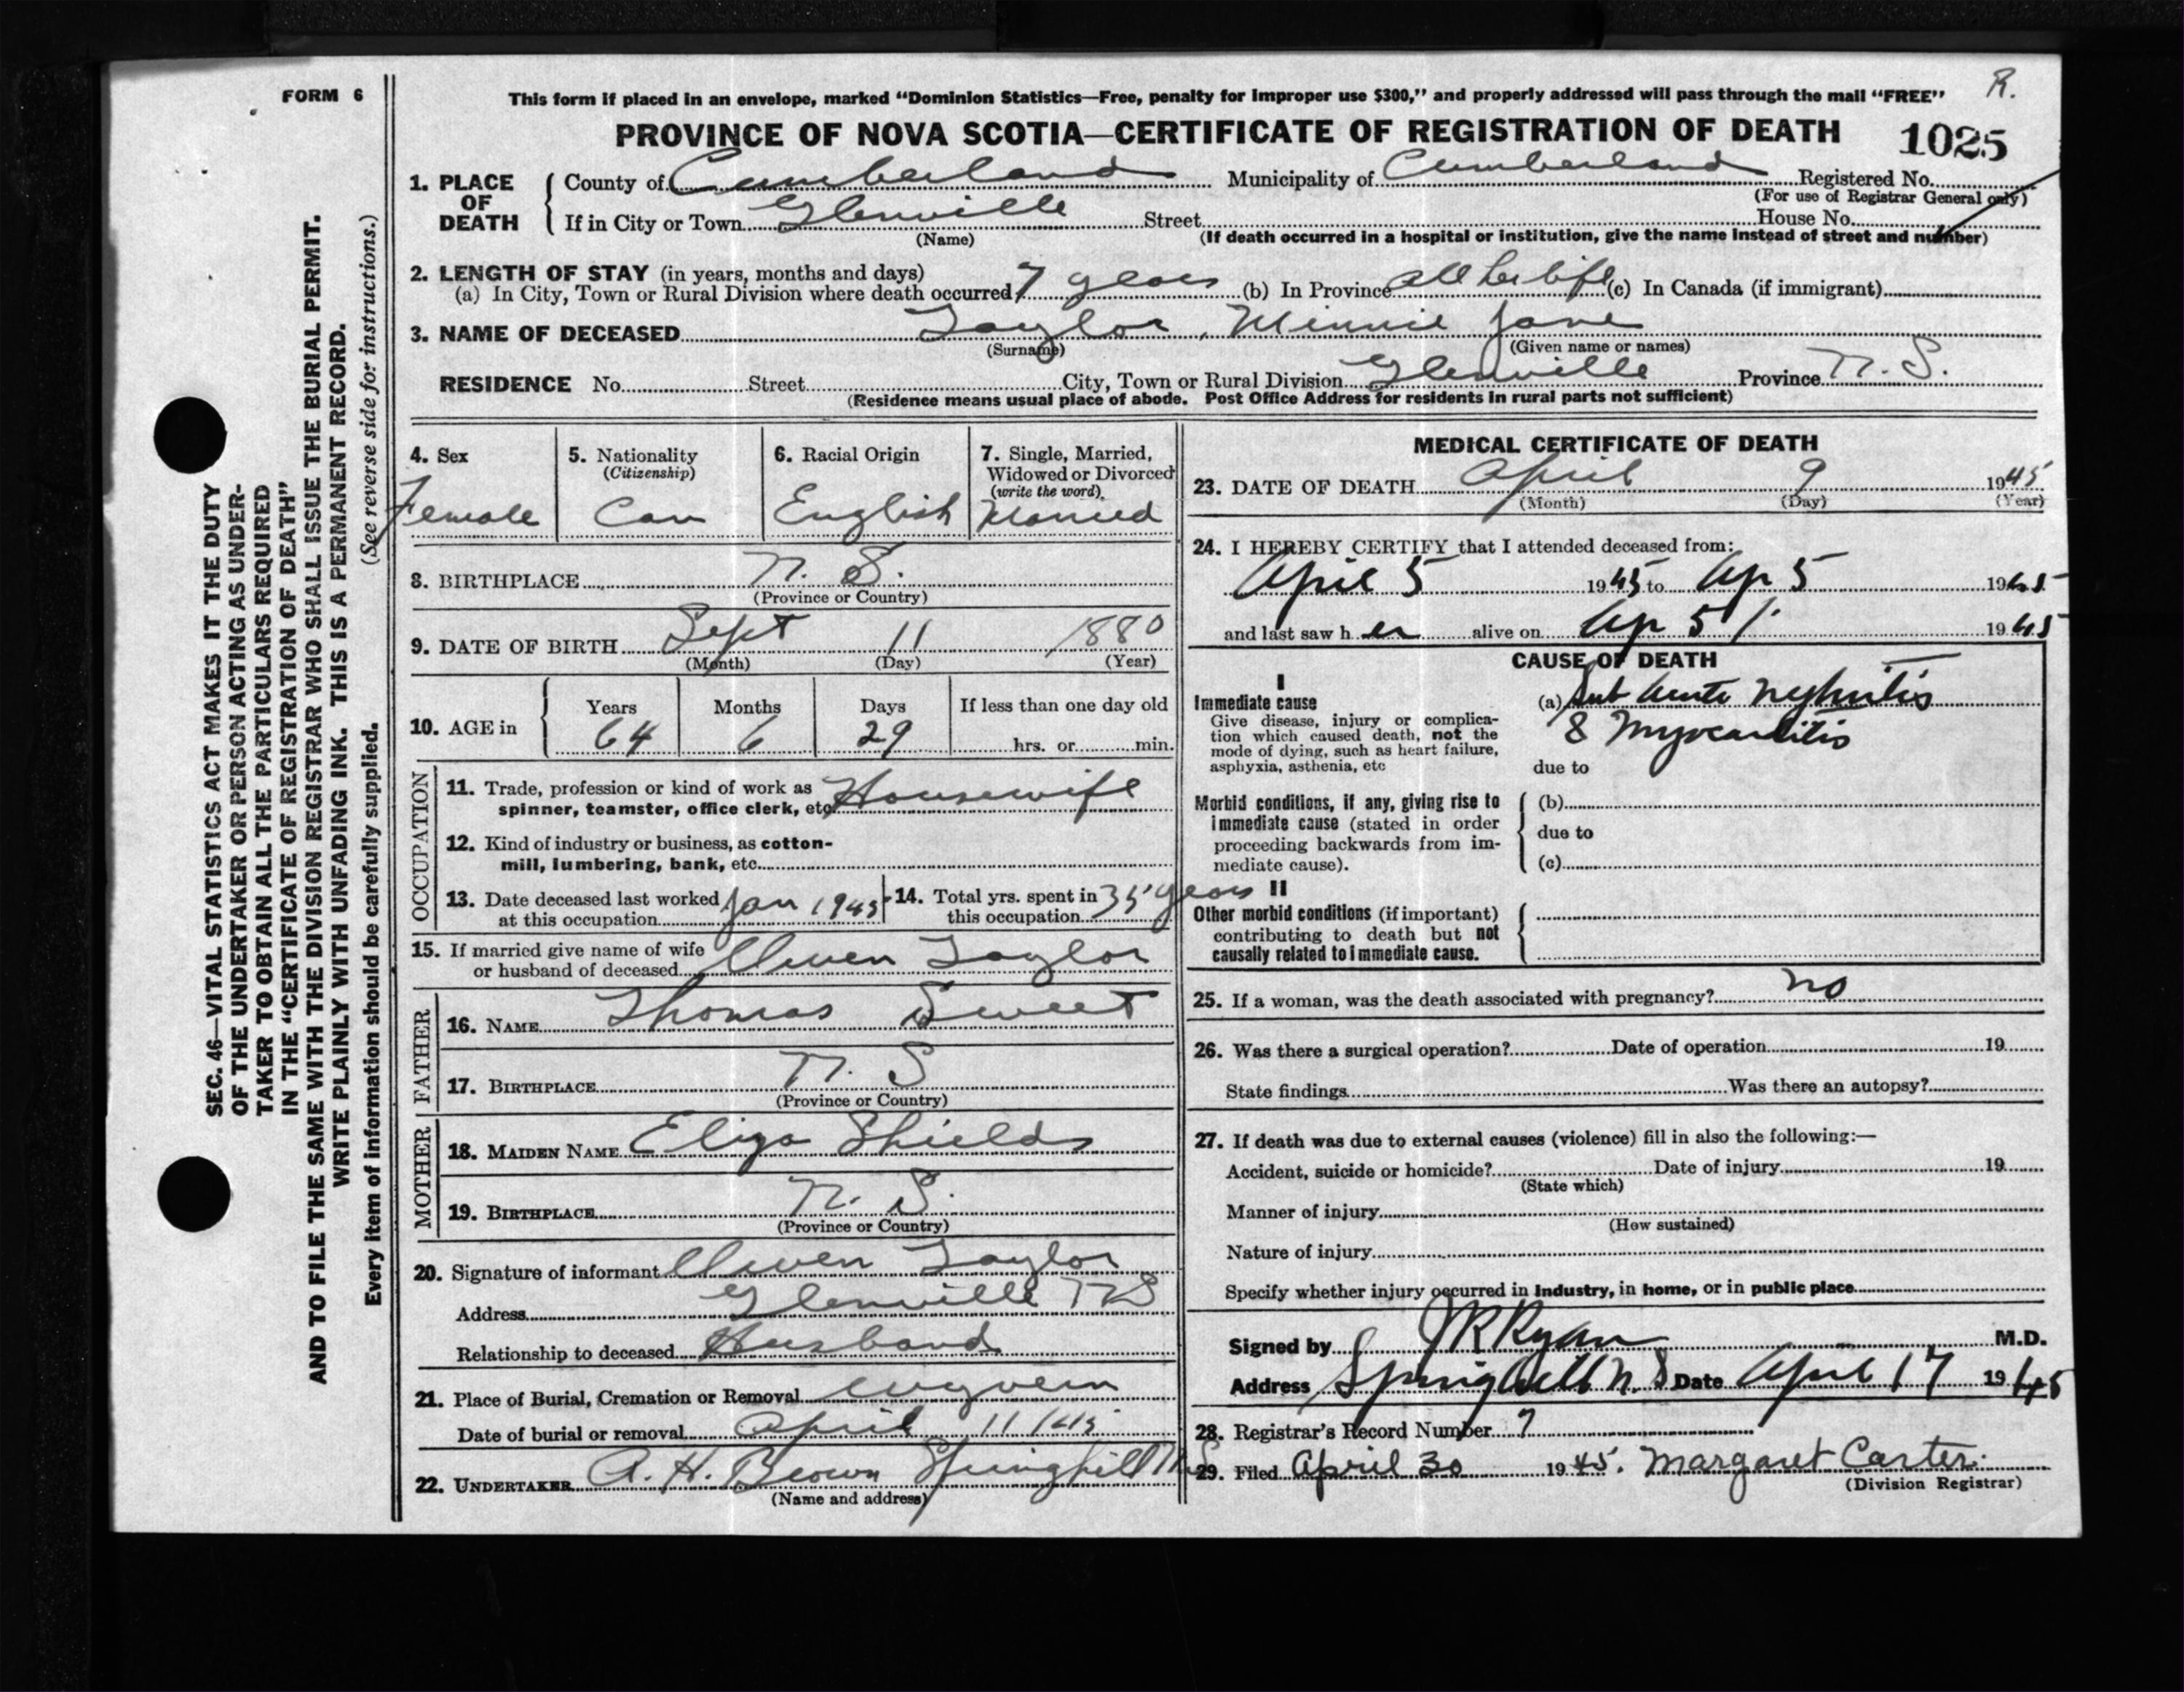 FORM 6
This form if placed in an envelope, marked "Dominion Statistics—Free, penalty for improper use $300," and properly addressed will pass through the mail "FREE"
R.
PROVINCE OF NOVA SCOTIA—CERTIFICATE OF REGISTRATION OF DEATH
1025
1. PLACE OF DEATH County of Cumberland Municipality of Cumberland Registered No.
(For use of Registrar General only)
If in City or Town Glenville Street House No.
(Name) (If death occurred in a hospital or institution, give the name instead of street and number)
2. LENGTH OF STAY (in years, months and days)
(a) In City, Town or Rural Division where death occurred 7 years (b) In Province all her life (c) In Canada (if immigrant)
3. NAME OF DECEASED Taylor, Minnie Jane
(Surname) (Given name or names)
RESIDENCE No. Street City, Town or Rural Division Glenville Province N. S.
(Residence means usual place of abode. Post Office Address for residents in rural parts not sufficient)
4. Sex
Female
5. Nationality
(Citizenship)
Can
6. Racial Origin
English
7. Single, Married,
Widowed or Divorced
(write the word)
Married
8. BIRTHPLACE N. S.
(Province or Country)
9. DATE OF BIRTH Sept 11 1880
(Month) (Day) (Year)
10. AGE in Years Months Days If less than one day old
64 6 29 hrs. or min.
OCCUPATION
11. Trade, profession or kind of work as
spinner, teamster, office clerk, etc Housewife
12. Kind of industry or business, as cotton-
mill, lumbering, bank, etc.
13. Date deceased last worked
at this occupation Jan 1945
14. Total yrs. spent in
this occupation 35 years
15. If married give name of wife
or husband of deceased Owen Taylor
FATHER
16. NAME Thomas Sweet
17. BIRTHPLACE N. S
(Province or Country)
MOTHER
18. MAIDEN NAME Eliza Shields
19. BIRTHPLACE N. S.
(Province or Country)
20. Signature of informant Owen Taylor
Address Glenville N S
Relationship to deceased Husband
21. Place of Burial, Cremation or Removal Wyvern
Date of burial or removal April 11/45
22. UNDERTAKER A. H. Brown Springhill N S
(Name and address)
MEDICAL CERTIFICATE OF DEATH
23. DATE OF DEATH April 9 1945
(Month) (Day) (Year)
24. I HEREBY CERTIFY that I attended deceased from:
April 5 1945 to Ap 5 1945
and last saw her alive on Ap 5 1945
CAUSE OF DEATH
I
Immediate cause
Give disease, injury or complica-
tion which caused death, not the
mode of dying, such as heart failure,
asphyxia, asthenia, etc
(a) Sub Acute Nephritis
& Myocarditis
due to
Morbid conditions, if any, giving rise to
immediate cause (stated in order
proceeding backwards from im-
mediate cause).
(b)
due to
(c)
II
Other morbid conditions (if important)
contributing to death but not
causally related to immediate cause.
25. If a woman, was the death associated with pregnancy? no
26. Was there a surgical operation? Date of operation 19
State findings Was there an autopsy?
27. If death was due to external causes (violence) fill in also the following:—
Accident, suicide or homicide? Date of injury 19
(State which)
Manner of injury
(How sustained)
Nature of injury
Specify whether injury occurred in industry, in home, or in public place
Signed by J R Ryan M.D.
Address Springhill N. S Date April 17 1945
28. Registrar's Record Number 7
29. Filed April 30 1945. Margaret Carter.
(Division Registrar)
SEC. 46—VITAL STATISTICS ACT MAKES IT THE DUTY
OF THE UNDERTAKER OR PERSON ACTING AS UNDER-
TAKER TO OBTAIN ALL THE PARTICULARS REQUIRED
IN THE "CERTIFICATE OF REGISTRATION OF DEATH"
AND TO FILE THE SAME WITH THE DIVISION REGISTRAR WHO SHALL ISSUE THE BURIAL PERMIT.
WRITE PLAINLY WITH UNFADING INK. THIS IS A PERMANENT RECORD.
Every item of information should be carefully supplied. (See reverse side for instructions.)